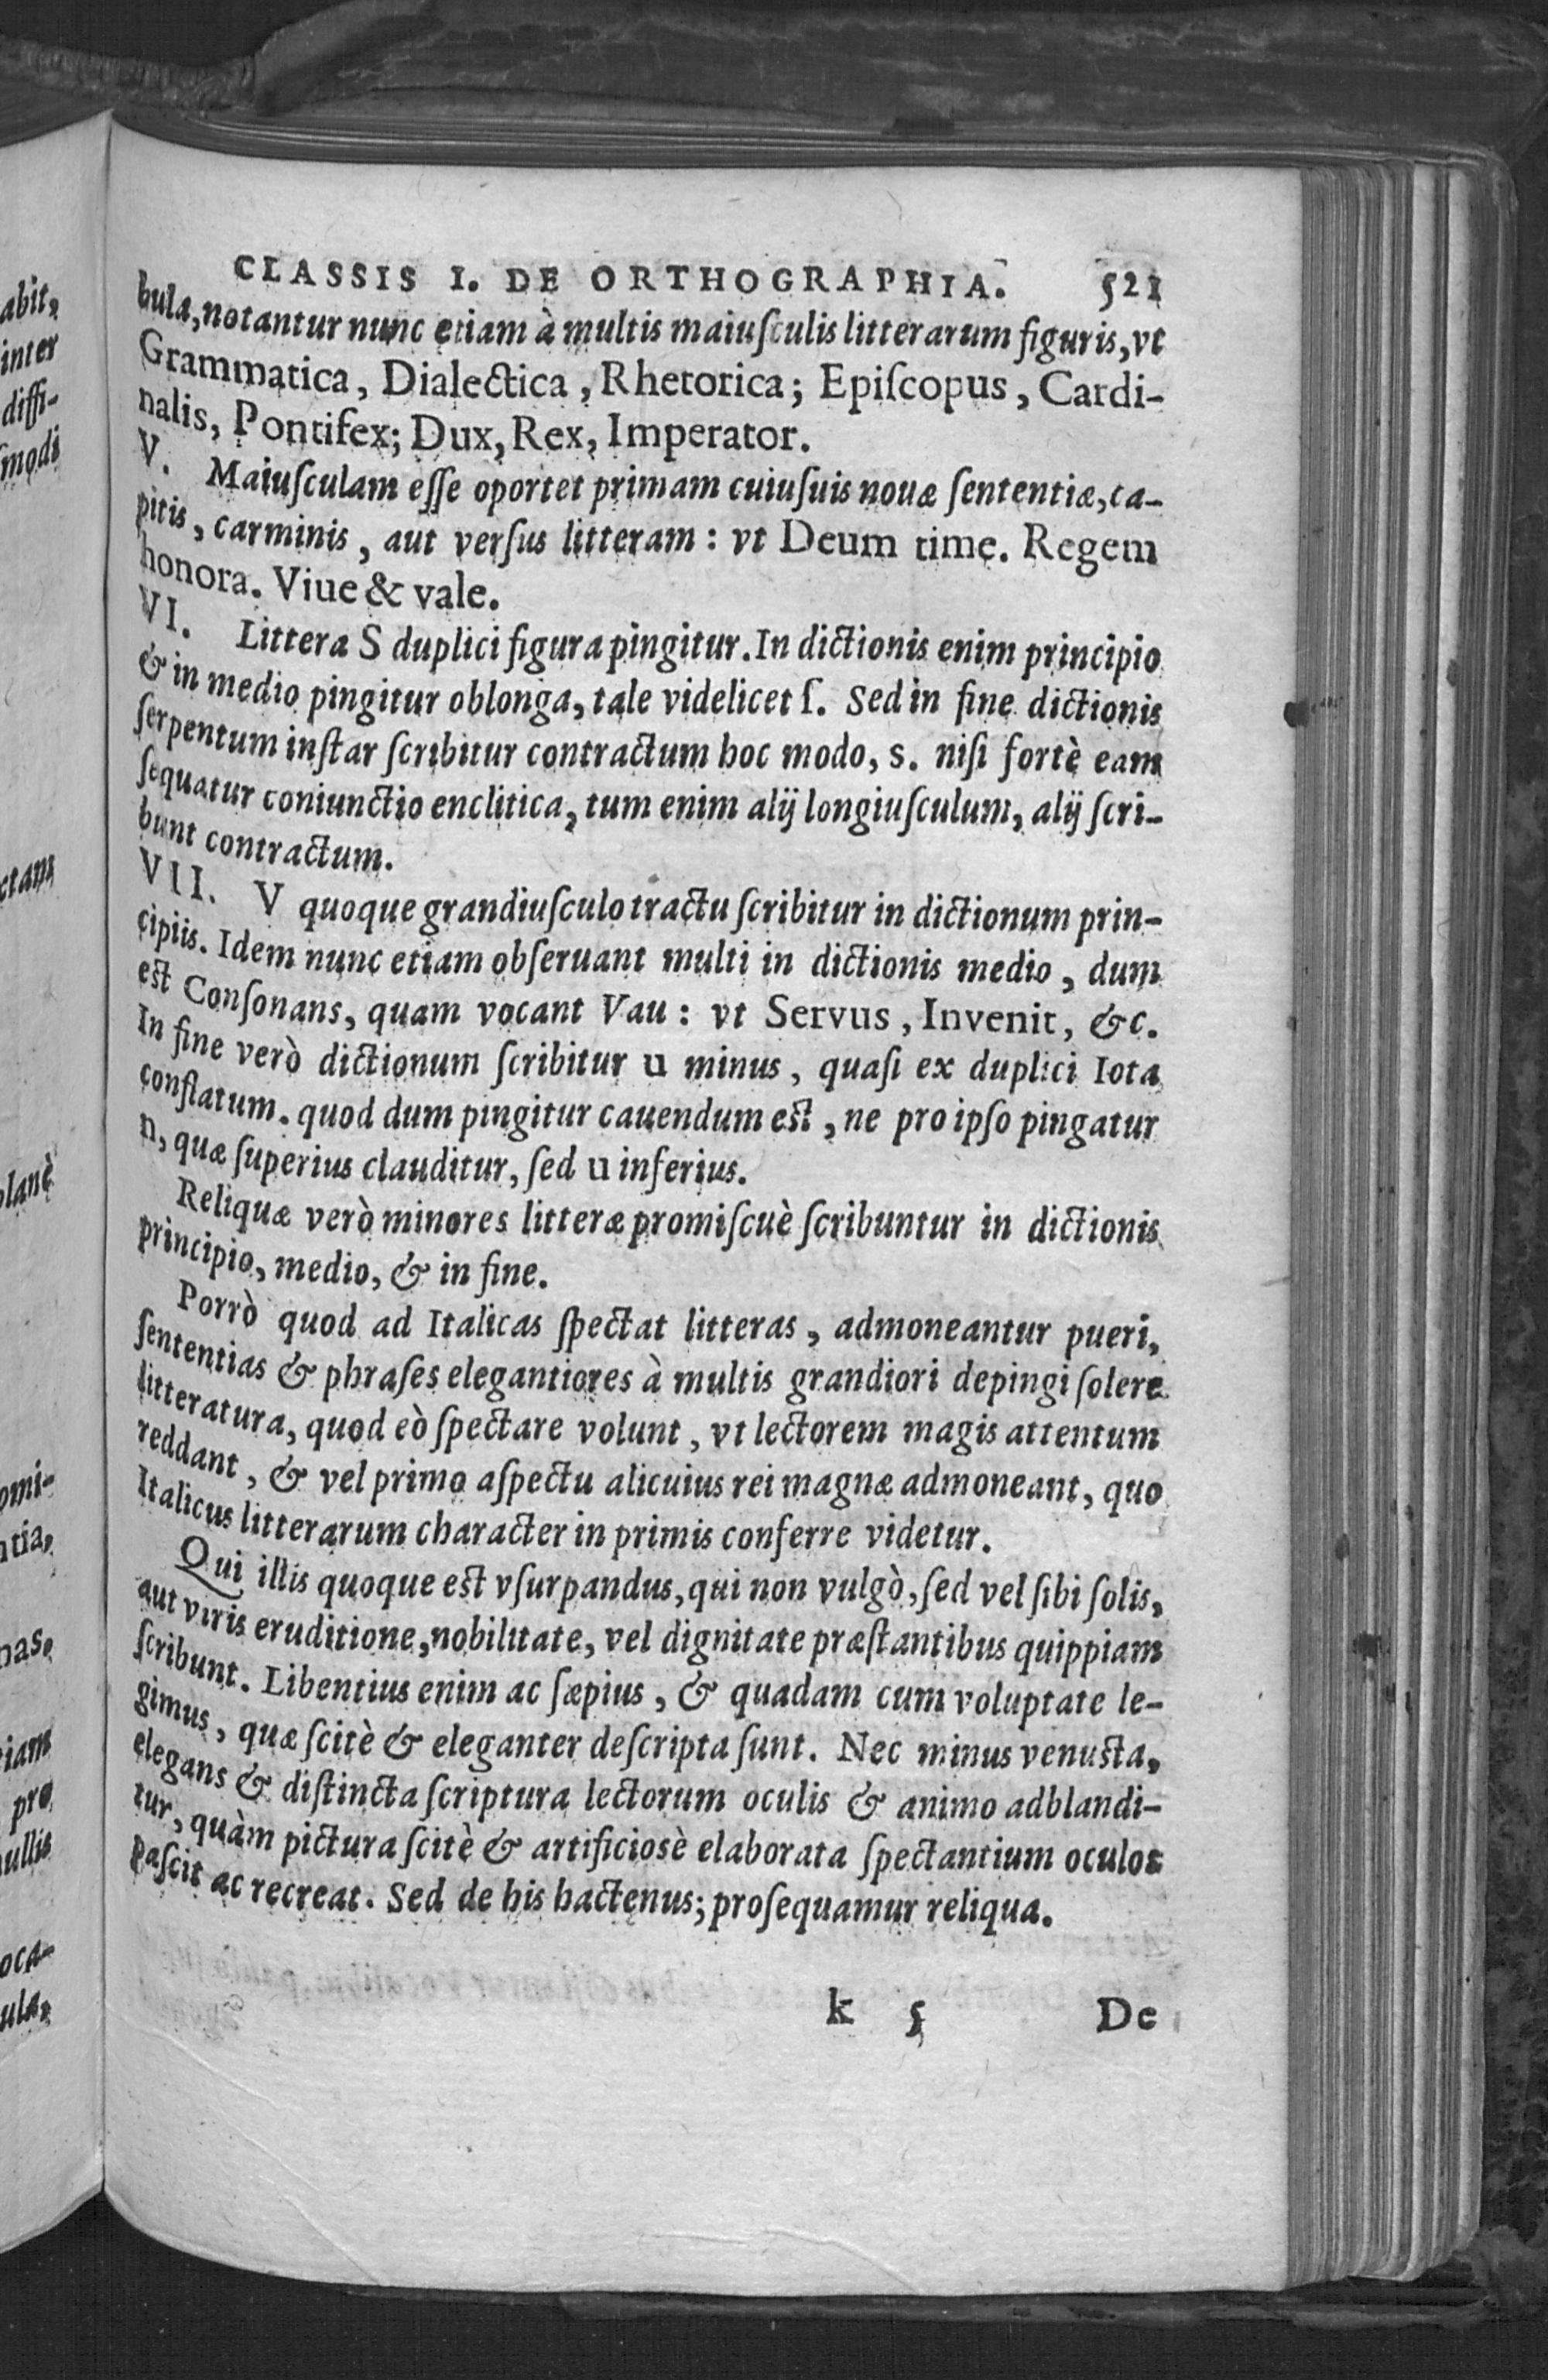 CLASSIS I. DE ORTHOGRAPHIA. 521
bula, notantur nunc etiam à multis maiuſculis litterarum figuris, vt
Grammatica, Dialectica, Rhetorica; Epiſcopus, Cardi-
nalis, Pontifex; Dux, Rex, Imperator.
V. Maiuſculam eſſe oportet primam cuiuſuis nouæ ſententiæ, ca-
pitis, carminis, aut verſus litteram: vt Deum time. Regem
honora. Viue & vale.
VI. Littera S duplici figura pingitur. In dictionis enim principio
& in medio pingitur oblonga, tale videlicet ſ. Sed in fine dictionis
ſerpentum inſtar ſcribitur contractum hoc modo, s. niſi fortè eam
ſequatur coniunctio enclitica, tum enim alij longiuſculum, alij ſcri-
bunt contractum.
VII. V quoque grandiuſculo tractu ſcribitur in dictionum prin-
cipiis. Idem nunc etiam obſeruant multi in dictionis medio, dum
est Conſonans, quam vocant Vau: vt Servus, Invenit, &c.
In fine verò dictionum ſcribitur u minus, quaſi ex duplici Iota
conflatum. quod dum pingitur cauendum est, ne pro ipſo pingatur
n, quæ ſuperius clauditur, ſed u inferius.
Reliquæ verò minores litteræ promiſcuè ſcribuntur in dictionis
principio, medio, & in fine.
Porrò quod ad Italicas ſpectat litteras, admoneantur pueri,
ſententias & phraſes elegantiores à multis grandiori depingi ſolere
litteratura, quod eò ſpectare volunt, vt lectorem magis attentum
reddant, & vel primo aſpectu alicuius rei magnæ admoneant, quo
Italicus litterarum character in primis conferre videtur.
Qui illis quoque est vſurpandus, qui non vulgò, ſed vel ſibi ſolis,
aut viris eruditione, nobilitate, vel dignitate præſtantibus quippiam
ſcribunt. Libentius enim ac ſæpius, & quadam cum voluptate le-
gimus, quæ ſcitè & eleganter deſcripta ſunt. Nec minus venusta,
elegans & diſtincta ſcriptura lectorum oculis & animo adblandi-
tur, quàm pictura ſcitè & artificiosè elaborata ſpectantium oculos
paſcit ac recreat. Sed de his hactenus; proſequamur reliqua.
k 5 De
abit,
inter
diffi-
ſmodi
ctam
planè
omi-
ntia,
nas,
tiam
pro
nullis
oca-
ula,